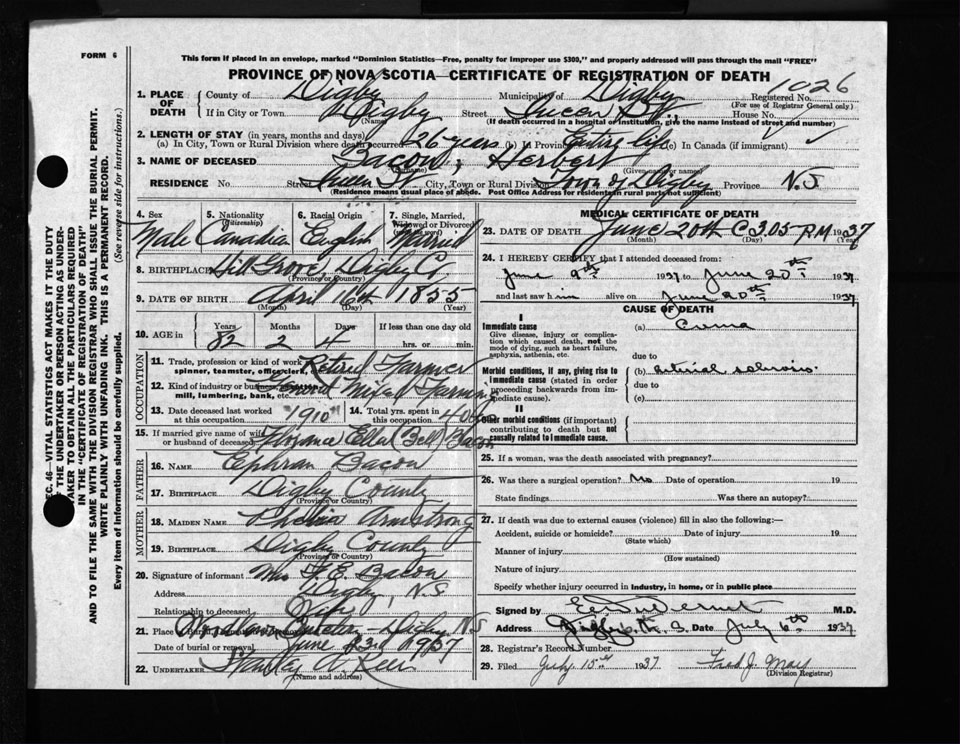 FORM 6
This form if placed in an envelope, marked "Dominion Statistics—Free, penalty for improper use $300," and properly addressed will pass through the mail "FREE"
PROVINCE OF NOVA SCOTIA—CERTIFICATE OF REGISTRATION OF DEATH
1026
1. PLACE OF DEATH { County of Digby Municipality of Digby Registered No.
(For use of Registrar General only)
If in City or Town Digby Street Queen St. House No.
(Name) (If death occurred in a hospital or institution, give the name instead of street and number)
2. LENGTH OF STAY (in years, months and days)
(a) In City, Town or Rural Division where death occurred 26 years (b) In Province Entire life (c) In Canada (if immigrant)
3. NAME OF DECEASED Bacon, Herbert
(Surname) (Given name or names)
RESIDENCE No. Street Queen St. City, Town or Rural Division Town of Digby Province N.S
(Residence means usual place of abode. Post Office Address for residents in rural parts not sufficient)
4. Sex Male
5. Nationality (Citizenship) Canadian
6. Racial Origin English
7. Single, Married, Widowed or Divorced Married
8. BIRTHPLACE Hill Grove, Digby Co.
(Province or Country)
9. DATE OF BIRTH April 16th 1855
(Month) (Day) (Year)
10. AGE in Years 82 Months 2 Days 4 If less than one day old hrs. or min.
OCCUPATION
11. Trade, profession or kind of work spinner, teamster, office clerk, Retired Farmer
12. Kind of industry or business, mill, lumbering, bank, etc. Mixed Farming
13. Date deceased last worked at this occupation 1910
14. Total yrs. spent in this occupation 40
15. If married give name of wife or husband of deceased Florance Ella (Bell) Bacon
FATHER
16. NAME Ephran Bacon
17. BIRTHPLACE Digby County
(Province or Country)
MOTHER
18. MAIDEN NAME Armstrong
19. BIRTHPLACE Digby County
(Province or Country)
20. Signature of informant Mrs F. E. Bacon
Address Digby, N.S
Relationship to deceased Wife
21. Place of Burial Woodlawn Cemetery—Digby N.S
Date of burial or removal June 23rd 1937
22. UNDERTAKER Stanley A.
(Name and address)
MEDICAL CERTIFICATE OF DEATH
23. DATE OF DEATH June 20th 3.05 P.M. 1937
(Month) (Day) (Year)
24. I HEREBY CERTIFY that I attended deceased from:
June 9th 1937 to June 20th 1937
and last saw him alive on June 20th 1937
CAUSE OF DEATH
I
Immediate cause (a)
Give disease, injury or complication which caused death, not the mode of dying, such as heart failure, asphyxia, asthenia, etc.
due to
Morbid conditions, if any, giving rise to immediate cause (stated in order proceeding backwards from immediate cause).
(b) arterial sclerosis.
due to
(c)
II
Other morbid conditions (if important) contributing to death but not causally related to immediate cause.
25. If a woman, was the death associated with pregnancy?
26. Was there a surgical operation? No Date of operation 19
State findings Was there an autopsy?
27. If death was due to external causes (violence) fill in also the following:—
Accident, suicide or homicide? Date of injury 19
(State which)
Manner of injury
(How sustained)
Nature of injury
Specify whether injury occurred in industry, in home, or in public place
Signed by M.D.
Address Digby, N. S. Date July 6th 1937
28. Registrar's Record Number
29. Filed July 15th 1937 Fred J. May
(Division Registrar)
SEC. 46—VITAL STATISTICS ACT MAKES IT THE DUTY
OF THE UNDERTAKER OR PERSON ACTING AS UNDERTAKER TO OBTAIN ALL THE PARTICULARS REQUIRED
IN THE "CERTIFICATE OF REGISTRATION OF DEATH"
AND TO FILE THE SAME WITH THE DIVISION REGISTRAR WHO SHALL ISSUE THE BURIAL PERMIT.
WRITE PLAINLY WITH UNFADING INK. THIS IS A PERMANENT RECORD.
Every item of Information should be carefully supplied. (See reverse side for instructions.)